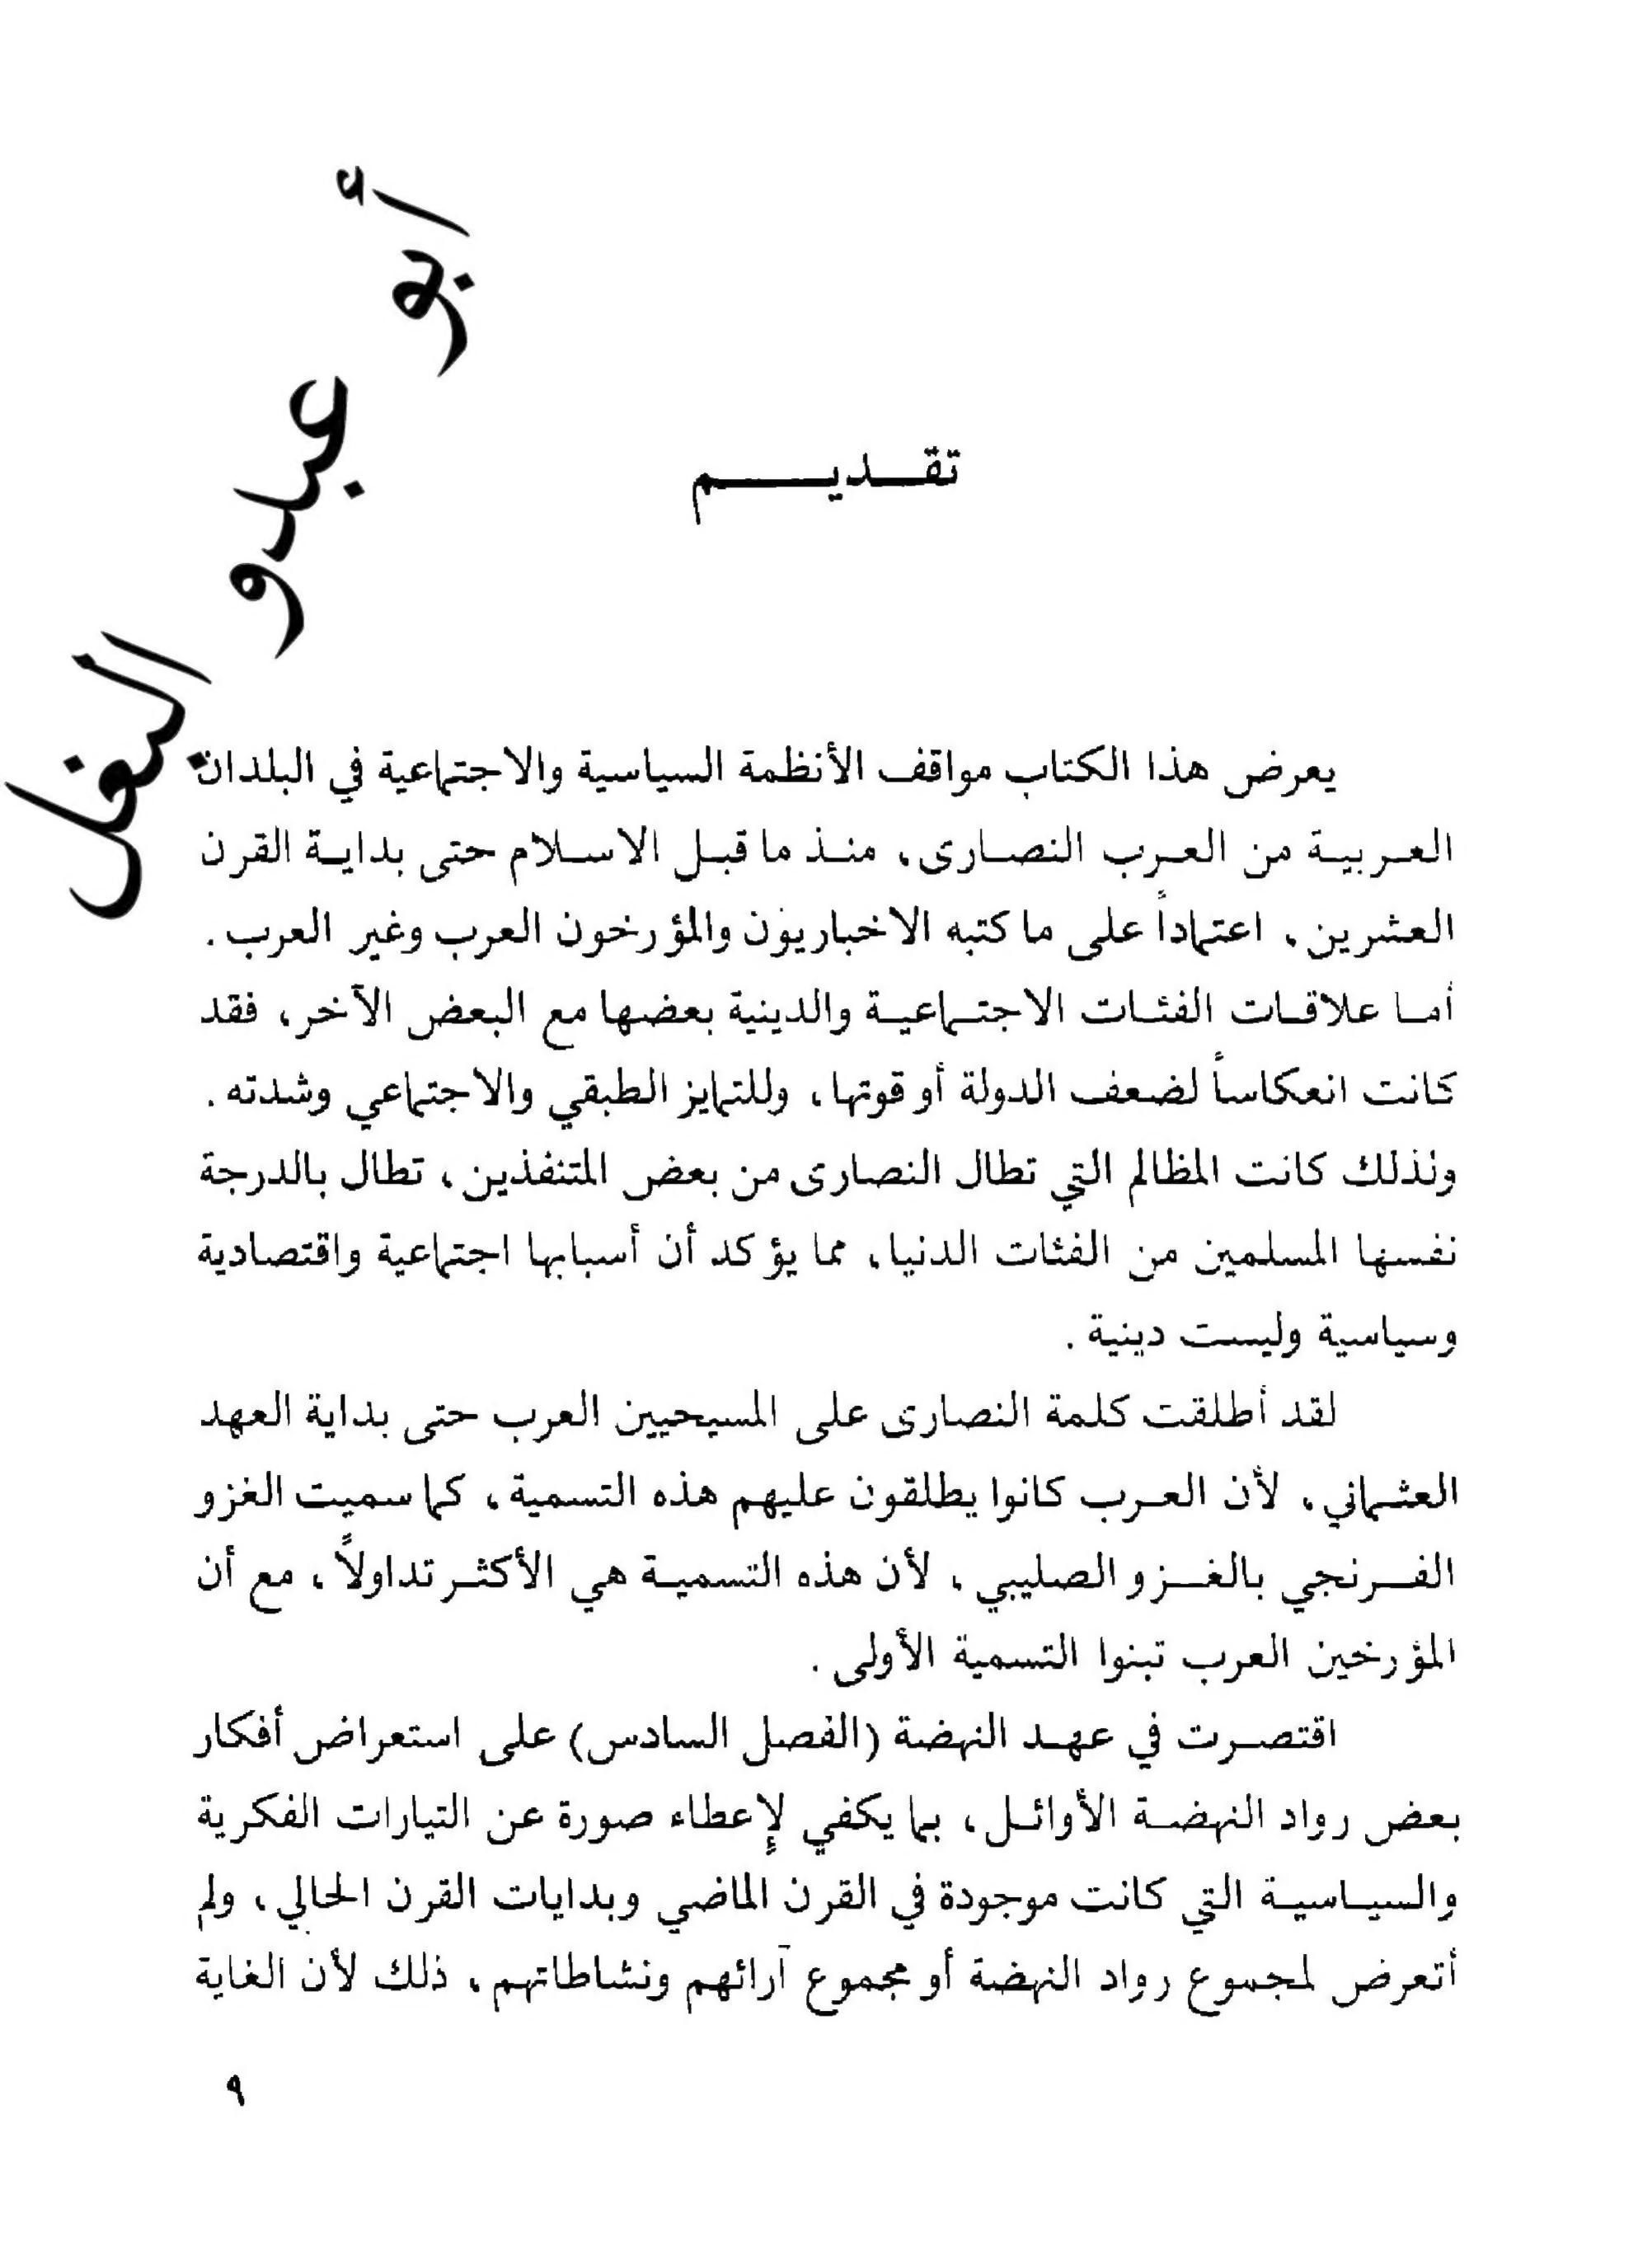 أبو عبدو البغل
تقديم
يعرض هذا الكتاب مواقف الأنظمة السياسية والاجتماعية في البلدان
العربية من العرب النصارى، منذ ما قبل الاسلام حتى بداية القرن
العشرين، اعتماداً على ما كتبه الاخباريون والمؤرخون العرب وغير العرب.
أما علاقات الفئات الاجتماعية والدينية بعضها مع البعض الآخر، فقد
كانت انعكاساً لضعف الدولة أو قوتها، وللتمايز الطبقي والاجتماعي وشدته.
ولذلك كانت المظالم التي تطال النصارى من بعض المتنفذين، تطال بالدرجة
نفسها المسلمين من الفئات الدنيا، مما يؤكد أن أسبابها اجتماعية واقتصادية
وسياسية وليست دينية.
لقد أطلقت كلمة النصارى على المسيحيين العرب حتى بداية العهد
العثماني، لأن العرب كانوا يطلقون عليهم هذه التسمية، كما سميت الغزو
الفرنجي بالغزو الصليبي، لأن هذه التسمية هي الأكثر تداولاً، مع أن
المؤرخين العرب تبنوا التسمية الأولى.
اقتصرت في عهد النهضة (الفصل السادس) على استعراض أفكار
بعض رواد النهضة الأوائل، بما يكفي لإعطاء صورة عن التيارات الفكرية
والسياسية التي كانت موجودة في القرن الماضي وبدايات القرن الحالي، ولم
أتعرض لمجموع رواد النهضة أو مجموع آرائهم ونشاطاتهم، ذلك لأن الغاية
٩